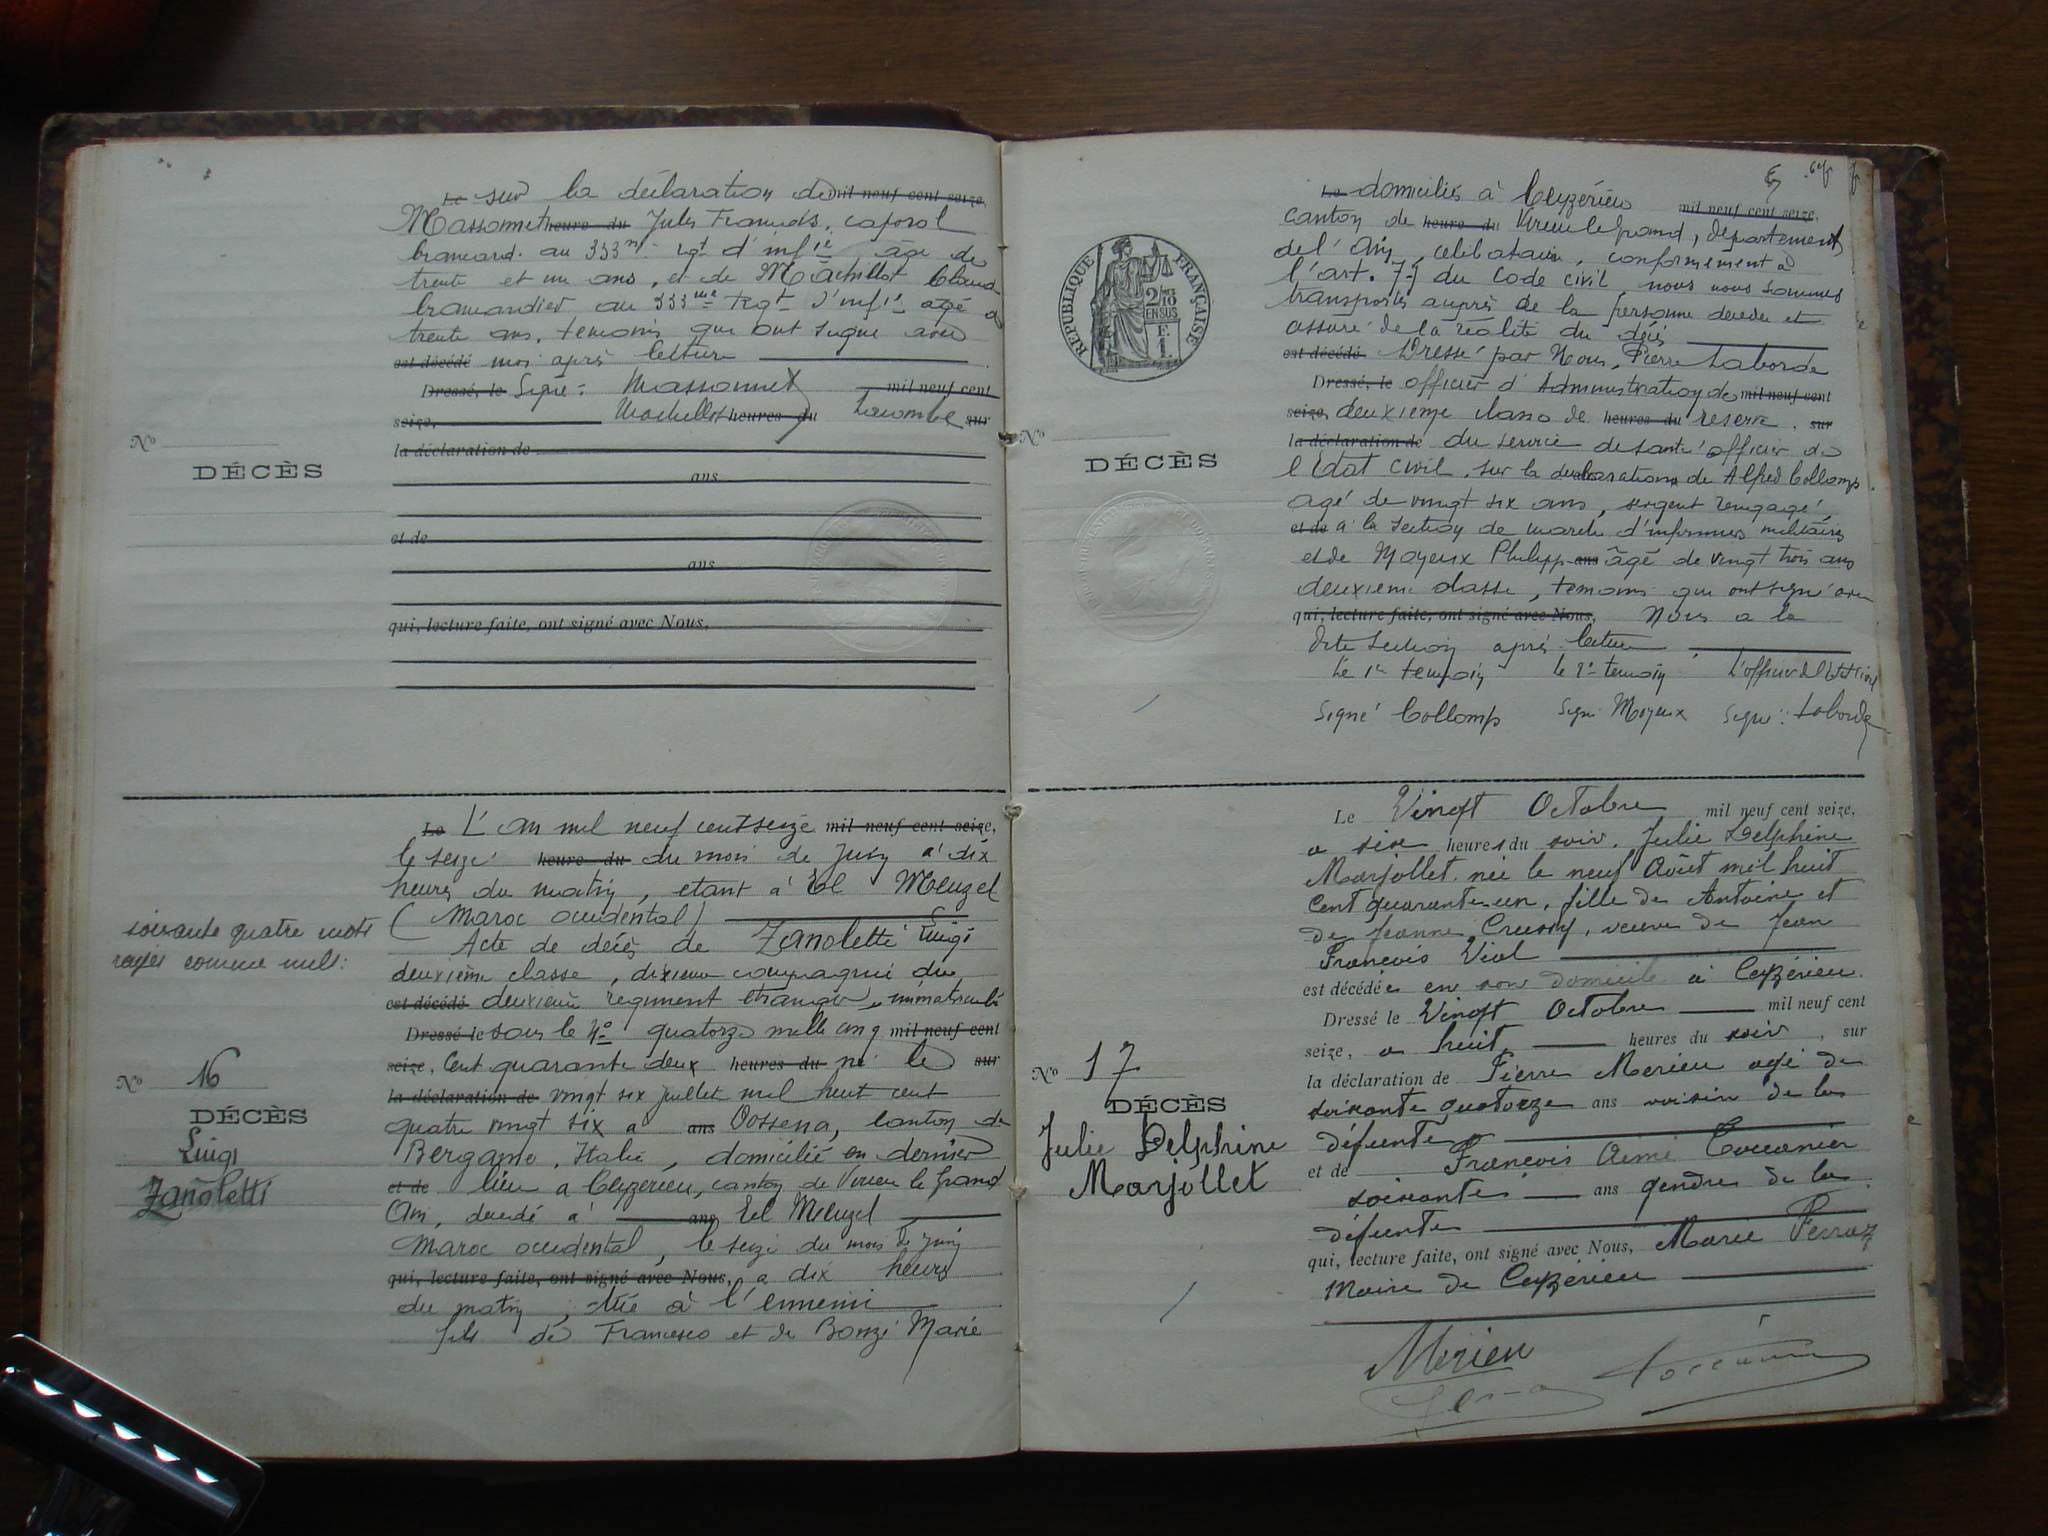 Le sur la déclaration de mil neuf cent seize,
Massonnet heure du Jules Francois, caporal
brancard. au 333me rgt d'infie âgé de
trente et un ans, et de Machillot Claud
brancardier au 333me Regt d'infie agé de
trente ans, temoins qui ont signé avec
est décédé moi après lecture
Dressé, le Signé : Massonnet mil neuf cent
seize, Machillot heures du Lacombe sur
la déclaration de
Nº
DÉCÈS
ans
et de
ans
qui, lecture faite, ont signé avec Nous,
Le L'an mil neuf cent seize mil neuf cent seize,
le seize heure du du mois de Juin à dix
heures du matin, etant à El Menzel
(Maroc occidental)
Acte de décès de Zanoletti Luigi
deuxième classe, dixieme compagnie du
est décédé deuxieme regiment etranger, immatriculé
Dressé le sous le Nº quatorze mille cinq mil neuf cent
seize, Cent quarante deux heures du né le sur
la déclaration de vingt six juillet mil huit cent
quatre vingt six a ans Oossena, canton de
Bergame, Italie, domicilié en dernier
et de lieu a Ceyzerieu, canton de Virieu le Grand
Ain, decedé a ans El Menzel
Maroc occidental, le seize du mois de Juin
qui, lecture faite, ont signé avec Nous, a dix heures
du matin, tué à l'ennemi
fils de Francesco et de Bonzi Marie
soixante quatre mots
rayés comme nuls:
Nº 16
DÉCÈS
Luigi
Zanoletti
Le domicilié à Ceyzérieu mil neuf cent seize,
canton de heure du Virieu le Grand, département
de l'Ain, celibataire, conformement à
l'art. 77 du Code civil, nous nous sommes
transportés auprès de la personne decedee et
assuré de la realite du décès
est décédé Dressé par Nous, Pierre Laborde
Dressé, le officier d'Administration de mil neuf cent
seize, deuxieme classe de heures du reserve, sur
la déclaration de du service de santé officier de
l'Etat civil, sur la declaration de Alfred Collomp
agé de vingt six ans, sergent rengagé,
et de à la section de marche d'infirmiers militaires
et de Moyeux Philipp ans âgé de vingt trois ans
deuxieme classe, temoins qui ont signé avec
qui, lecture faite, ont signé avec Nous, Nous a la
dite section après lecture
Le 1er temoin Le 2e temoin L'officier de l'Etat Civil
Signé Collomp Signé Moyeux Signé : Laborde
RÉPUBLIQUE FRANÇAISE
2/10
EN SUS
1 F.
Nº
DÉCÈS
Le Vingt Octobre mil neuf cent seize,
a six heures du soir, Julie Delphine
Marjollet née le neuf Août mil huit
Cent quarante-un, fille de Antoine et
de Jeanne Crussy, veuve de Jean
Francois Viol
est décédée en son domicile à Ceyzérieu.
Dressé le Vingt Octobre mil neuf cent
seize, a huit heures du soir, sur
la déclaration de Pierre Merieu agé de
soixante quatorze ans voisin de la
défunte
et de Francois Aimé Toccanier
soixante ans gendre de la
défunte
qui, lecture faite, ont signé avec Nous, Marie Perraz
Maire de Ceyzérieu
Merieu
Nº 17
DÉCÈS
Julie Delphine
Marjollet